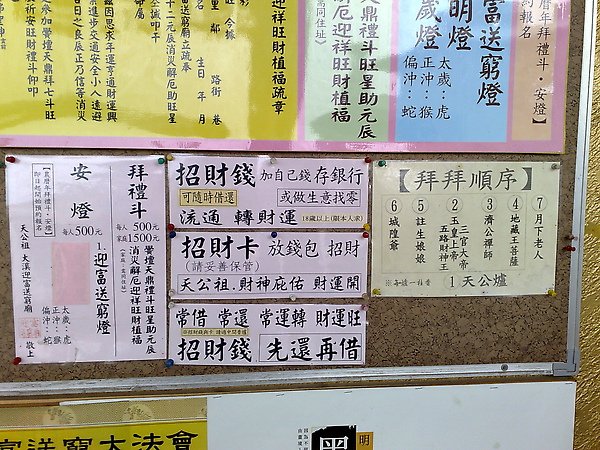 彩迎祥旺財植福疏章
旺 今據
里鄰 路街巷
姓名
生日 年 月
富送窮廟立疏奉
十二元辰消災解厄助旺星
誠叩干
福因思求年運亨通財運興
業進步交通安全小人遠避
日之良辰正乃信等消災
參加覺燈天鼎拜七斗旺
祈安旺財禮斗仰叩
天鼎禮斗旺星助元辰
解厄迎祥旺財植福
富送窮燈
明燈
歲燈
太歲：虎
正沖：猴
偏沖：蛇
曆年拜禮斗、安燈】
約報名
拜禮斗
每人 500元
家庭1500元
覺燈天鼎禮斗旺星助元辰
消災解厄迎祥旺財植福
安燈
每人500元
1.迎富送窮燈
太歲：虎
正沖：猴
偏沖：蛇
【農曆年拜禮斗、安燈】
即日起開始預約報名
天公祖、大溪迎富送窮廟
敬上
招財錢 加自己錢存銀行
可隨時借還 或做生意找零
流通 轉財運 18歲以上(限本人求)
招財卡 放錢包 招財
(請妥善保管)
天公祖.財神庇佑 財運開
常借 常還 常運轉 財運旺
招財錢 先還再借
【拜拜順序】
7月下老人
4地藏王菩薩
3濟公禪師
三官大帝
2玉皇上帝
五路財神王
5註生娘娘
6城隍爺
※每爐一柱香 1天公爐
富送窮大法會
明